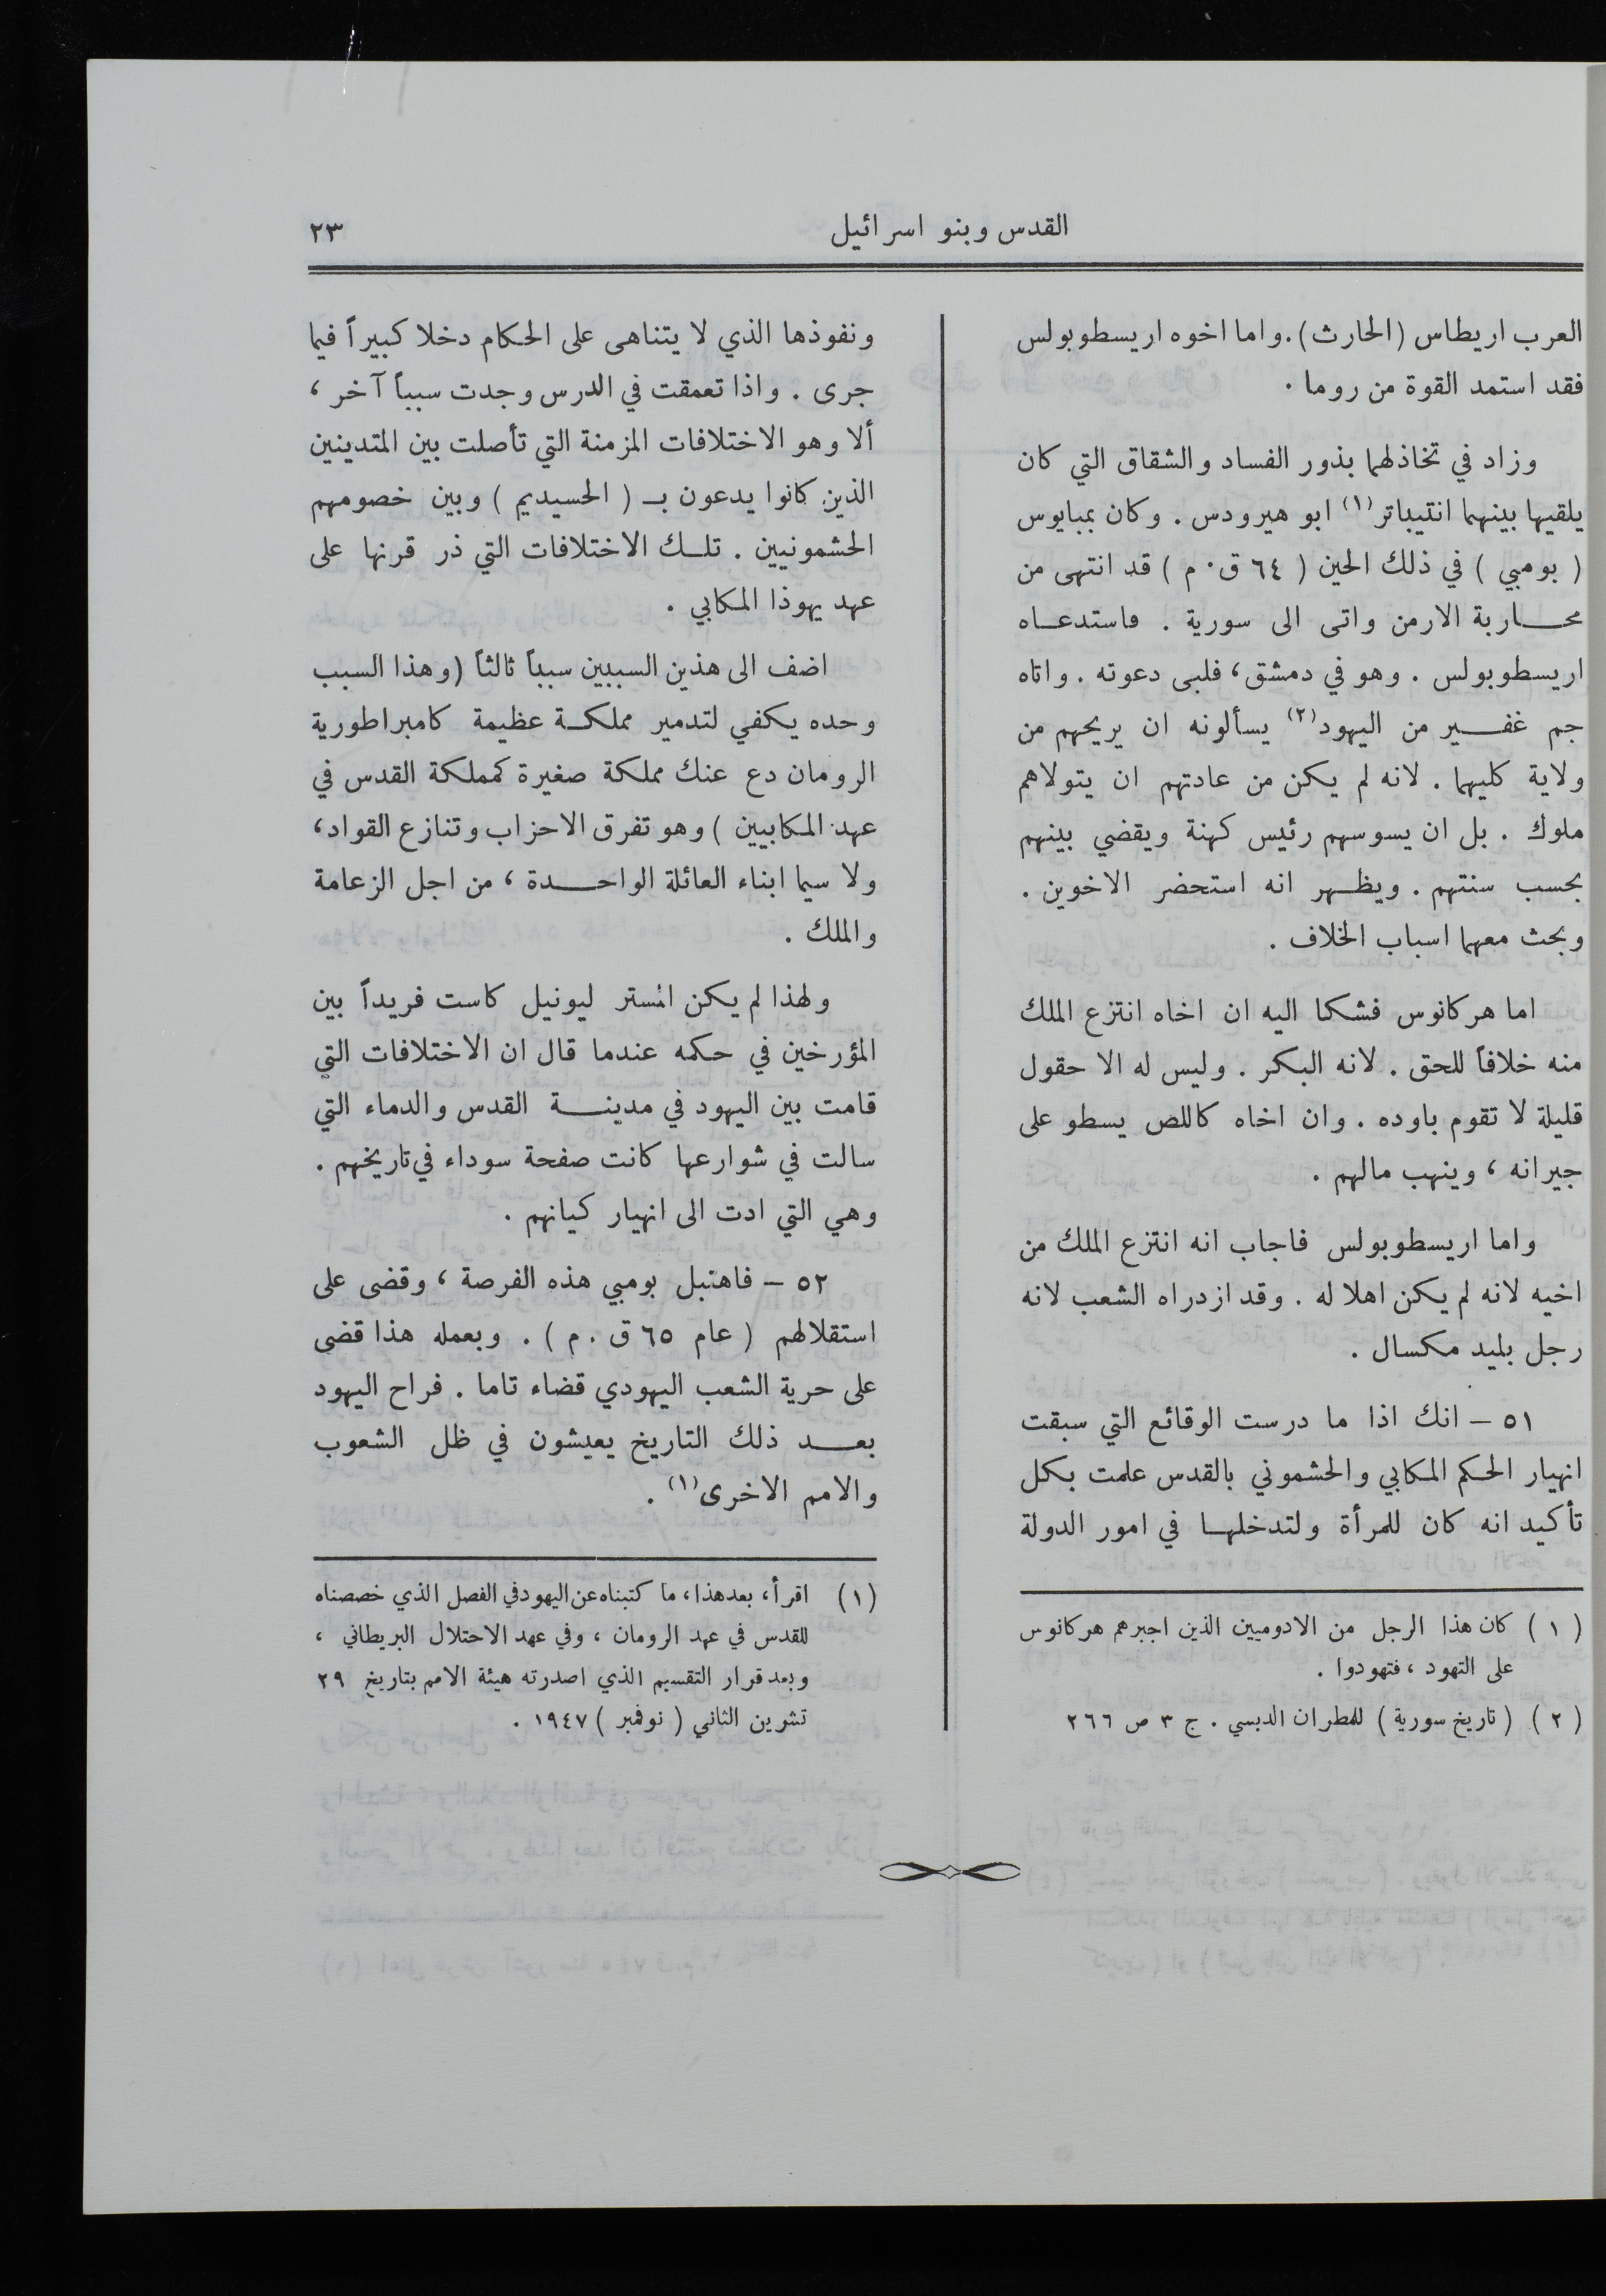 القدس وبنو اسرائيل
٢٣
العرب اريطاس (الحارث). واما اخوه اريسطوبولس
فقد استمد القوة من روما .
وزاد في تخاذلهما بذور الفساد والشقاق التي كان
يلقيها بينهما انتيباتر(١) ابو هيرودس . وكان بمبايوس
( بومبي ) في ذلك الحين ( ٦٤ ق. م ) قد انتهى من
محاربة الارمن واتى الى سورية . فاستدعاه
اريسطوبولس . وهو في دمشق، فلبى دعوته . واتاه
جم غفير من اليهود(٢) يسألونه ان يريحهم من
ولاية كليهما . لانه لم يكن من عادتهم ان يتولاهم
ملوك . بل ان يسوسهم رئيس كهنة ويقضي بينهم
بحسب سنتهم . ويظهر انه استحضر الاخوين .
وبحث معهما اسباب الخلاف .
اما هركانوس فشكا اليه ان اخاه انتزع الملك
منه خلافاً للحق . لانه البكر . وليس له الا حقول
قليلة لا تقوم باوده . وان اخاه كاللص يسطو على
جيرانه ، وينهب مالهم .
واما اريسطوبولس فاجاب انه انتزع الملك من
اخيه لانه لم يكن اهلا له . وقد ازدراه الشعب لانه
رجل بليد مكسال .
٥١ – انك اذا ما درست الوقائع التي سبقت
انهيار الحكم المكابي والحشموني بالقدس علمت بكل
تأكيد انه كان للمرأة ولتدخلها في امور الدولة
( ١ ) كان هذا الرجل من الادوميين الذين اجبرهم هركانوس
على التهود ، فتهودوا .
( ٢ ) ( تاريخ سورية ) للمطران الدبسي . ج ٣ ص ٢٦٦
ونفوذها الذي لا يتناهى على الحكام دخلا كبيراً فيما
جرى . واذا تعمقت في الدرس وجدت سبباً آخر ،
ألا وهو الاختلافات المزمنة التي تأصلت بين المتدينين
الذين كانوا يدعون بـ ( الحسيديم ) وبين خصومهم
الحشمونيين . تلك الاختلافات التي ذر قرنها على
عهد يهوذا المكابي .
اضف الى هذين السببين سبباً ثالثاً (وهذا السبب
وحده يكفي لتدمير مملكة عظيمة كامبراطورية
الرومان دع عنك مملكة صغيرة كمملكة القدس في
عهد المكابيين ) وهو تفرق الاحزاب وتنازع القواد،
ولا سيما ابناء العائلة الواحدة ، من اجل الزعامة
والملك .
ولهذا لم يكن المستر ليونيل كاست فريداً بين
المؤرخين في حكمه عندما قال ان الاختلافات التي
قامت بين اليهود في مدينة القدس والدماء التي
سالت في شوارعها كانت صفحة سوداء في تاريخهم .
وهي التي ادت الى انهيار كيانهم .
٥٢ – فاهتبل بومبي هذه الفرصة ، وقضى على
استقلالهم ( عام ٦٥ ق . م ) . وبعمله هذا قضى
على حرية الشعب اليهودي قضاء تاما . فراح اليهود
بعد ذلك التاريخ يعيشون في ظل الشعوب
والامم الاخرى(١) .
(١) اقرأ، بعد هذا، ما كتبناه عن اليهود في الفصل الذي خصصناه
للقدس في عهد الرومان ، وفي عهد الاحتلال البريطاني ،
وبعد قرار التقسيم الذي اصدرته هيئة الامم بتاريخ ٢٩
تشرين الثاني ( نوفمبر ) ١٩٤٧ .